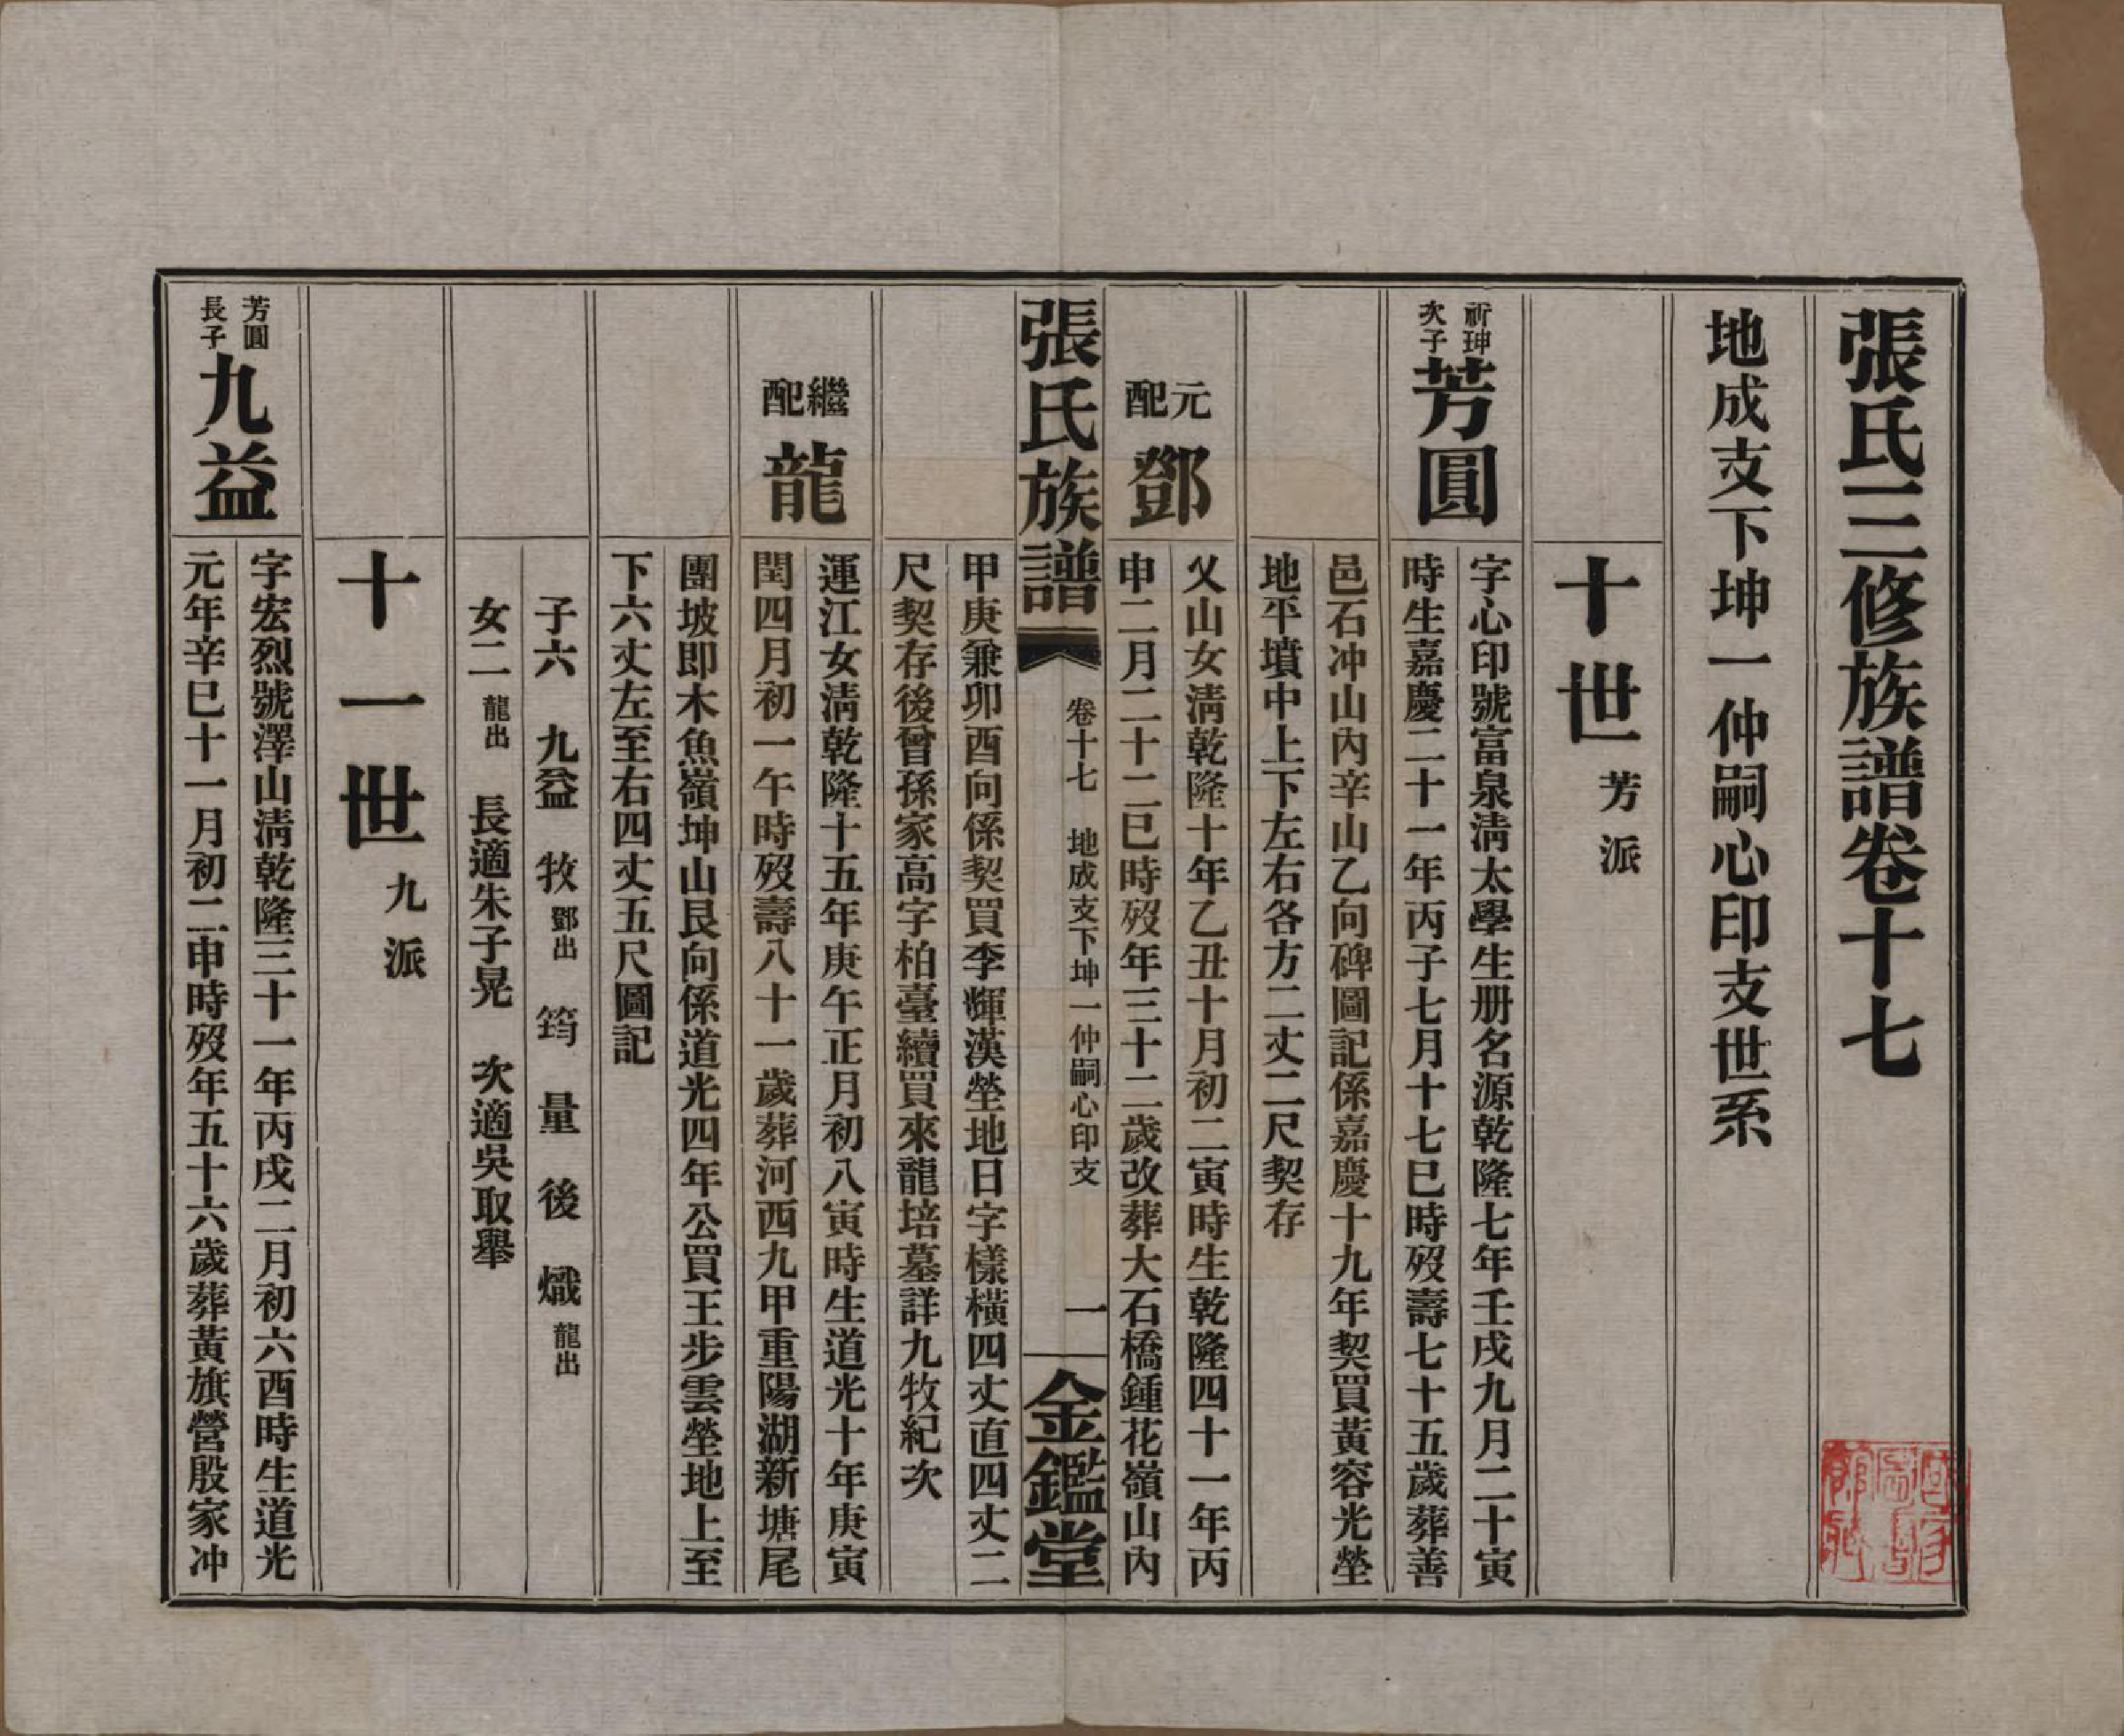 張氏三修族譜卷十七
地成支下坤一仲嗣心印支世系
十世 芳派
祈珅
次子
芳圓
字心印號富泉淸太學生册名源乾隆七年壬戌九月二十寅
時生嘉慶二十一年丙子七月十七巳時歿壽七十五歲葬善
邑石冲山內辛山乙向碑圖記係嘉慶十九年契買黃容光塋
地平墳中上下左右各方二丈二尺契存
元配 鄧
乂山女淸乾隆十年乙丑十月初二寅時生乾隆四十一年丙
申二月二十二巳時歿年三十二歲改葬大石橋鍾花嶺山內
張氏族譜 卷十七 地成支下坤一仲嗣心印支 一 金鑑堂
甲庚兼卯酉向係契買李輝漢塋地日字樣橫四丈直四丈二
尺契存後曾孫家高字柏臺續買來龍培墓詳九牧紀次
繼配 龍
運江女淸乾隆十五年庚午正月初八寅時生道光十年庚寅
閏四月初一午時歿壽八十一歲葬河西九甲重陽湖新塘尾
團坡即木魚嶺坤山艮向係道光四年公買王步雲塋地上至
下六丈左至右四丈五尺圖記
子六 九益 牧 鄧出 筠 量 後 熾 龍出
女二 龍出 長適朱子晃 次適吳取舉
十一世 九派
芳圓
長子
九益
字宏烈號澤山淸乾隆三十一年丙戌二月初六酉時生道光
元年辛巳十一月初二申時歿年五十六歲葬黃旗營殷家冲